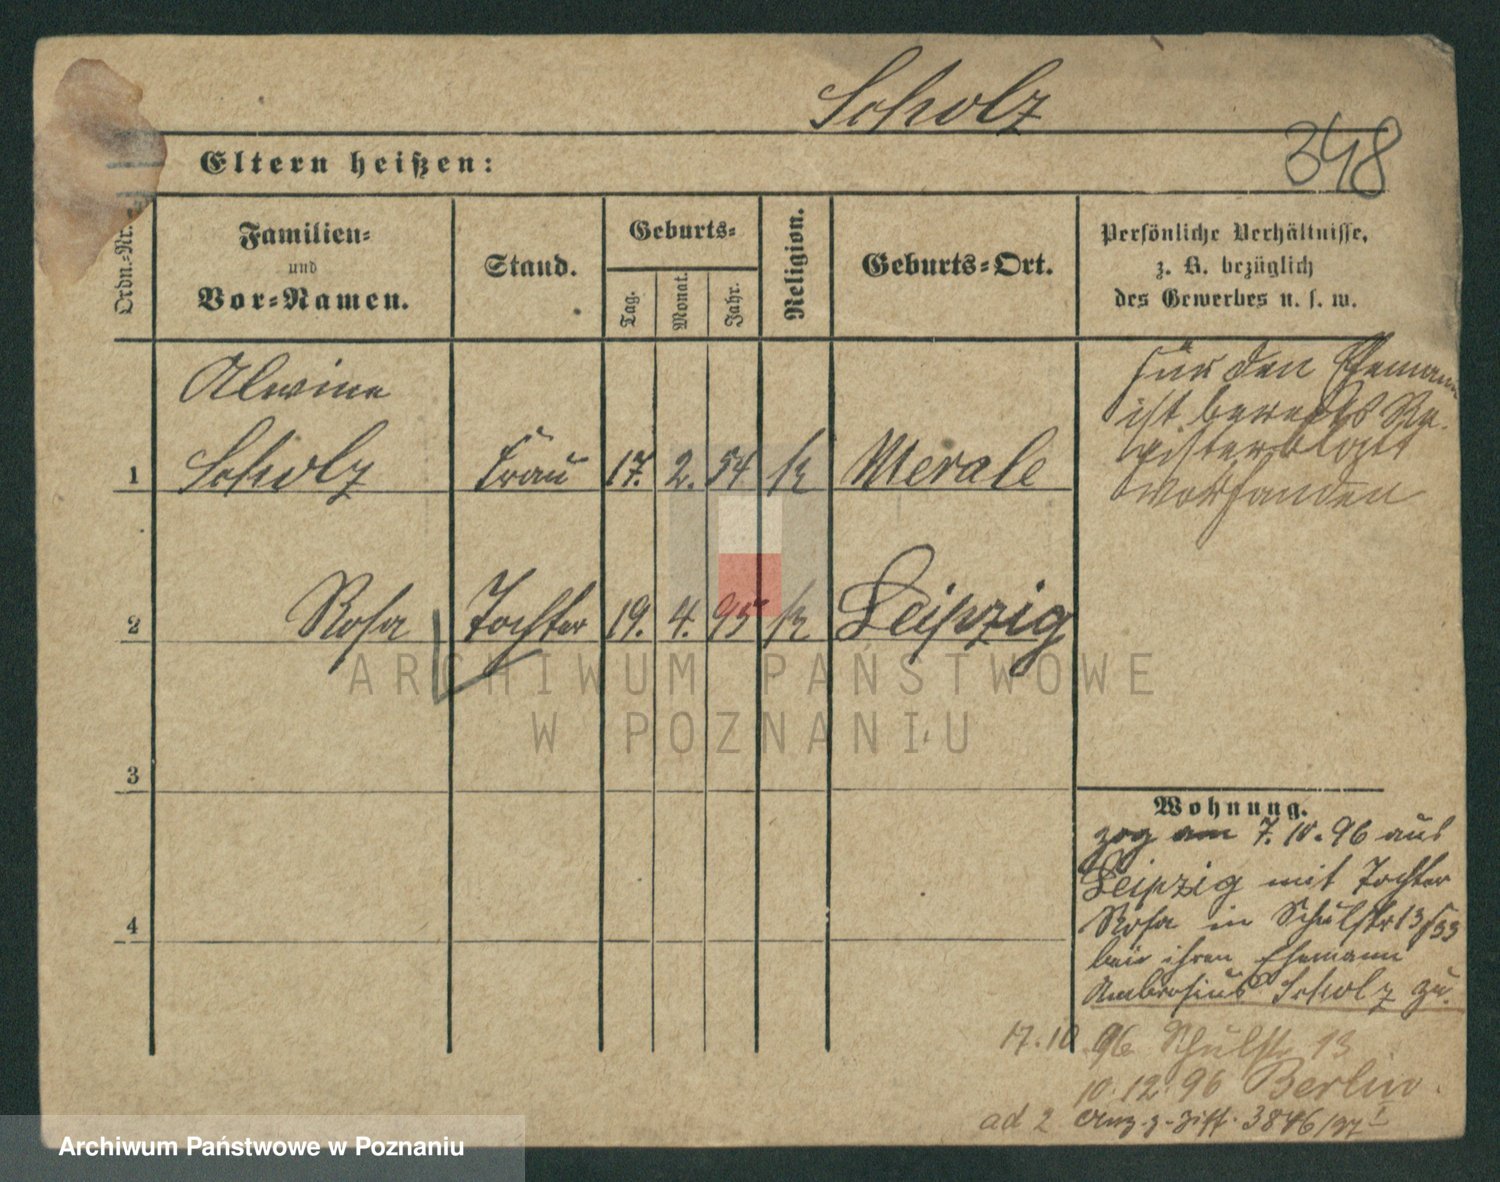 Scholz
348
Eltern heißen:
Ordn.-Nr.
Familien-
und
Vor-Namen.
Stand.
Geburts-
Tag.
Monat.
Jahr.
Religion.
Geburts-Ort.
Persönliche Verhältnisse,
z. B. bezüglich
des Gewerbes u. s. w.
Alwine
1 Scholz Frau 17. 2. 54 k Merale
für den Ehemann
ist bereits Re-
gisterblatt
vorhanden
2 Rosa Tochter 19. 4. 95 k Leipzig
3
4
Wohnung.
zog am 7.10.96 aus
Leipzig mit Tochter
Rosa in Schulstr 13
bei ihren Ehemann
Ambrosius Scholz zu.
17.10.96 Schulstr 13
10.12.96 Berlin.
ad 2 3846/97 I
ARCHIWUM PAŃSTWOWE
W POZNANIU
Archiwum Państwowe w Poznaniu